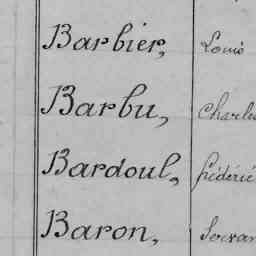 Barbier, Louis
Barbu, Charles
Bardoul, Frédéric
Baron,